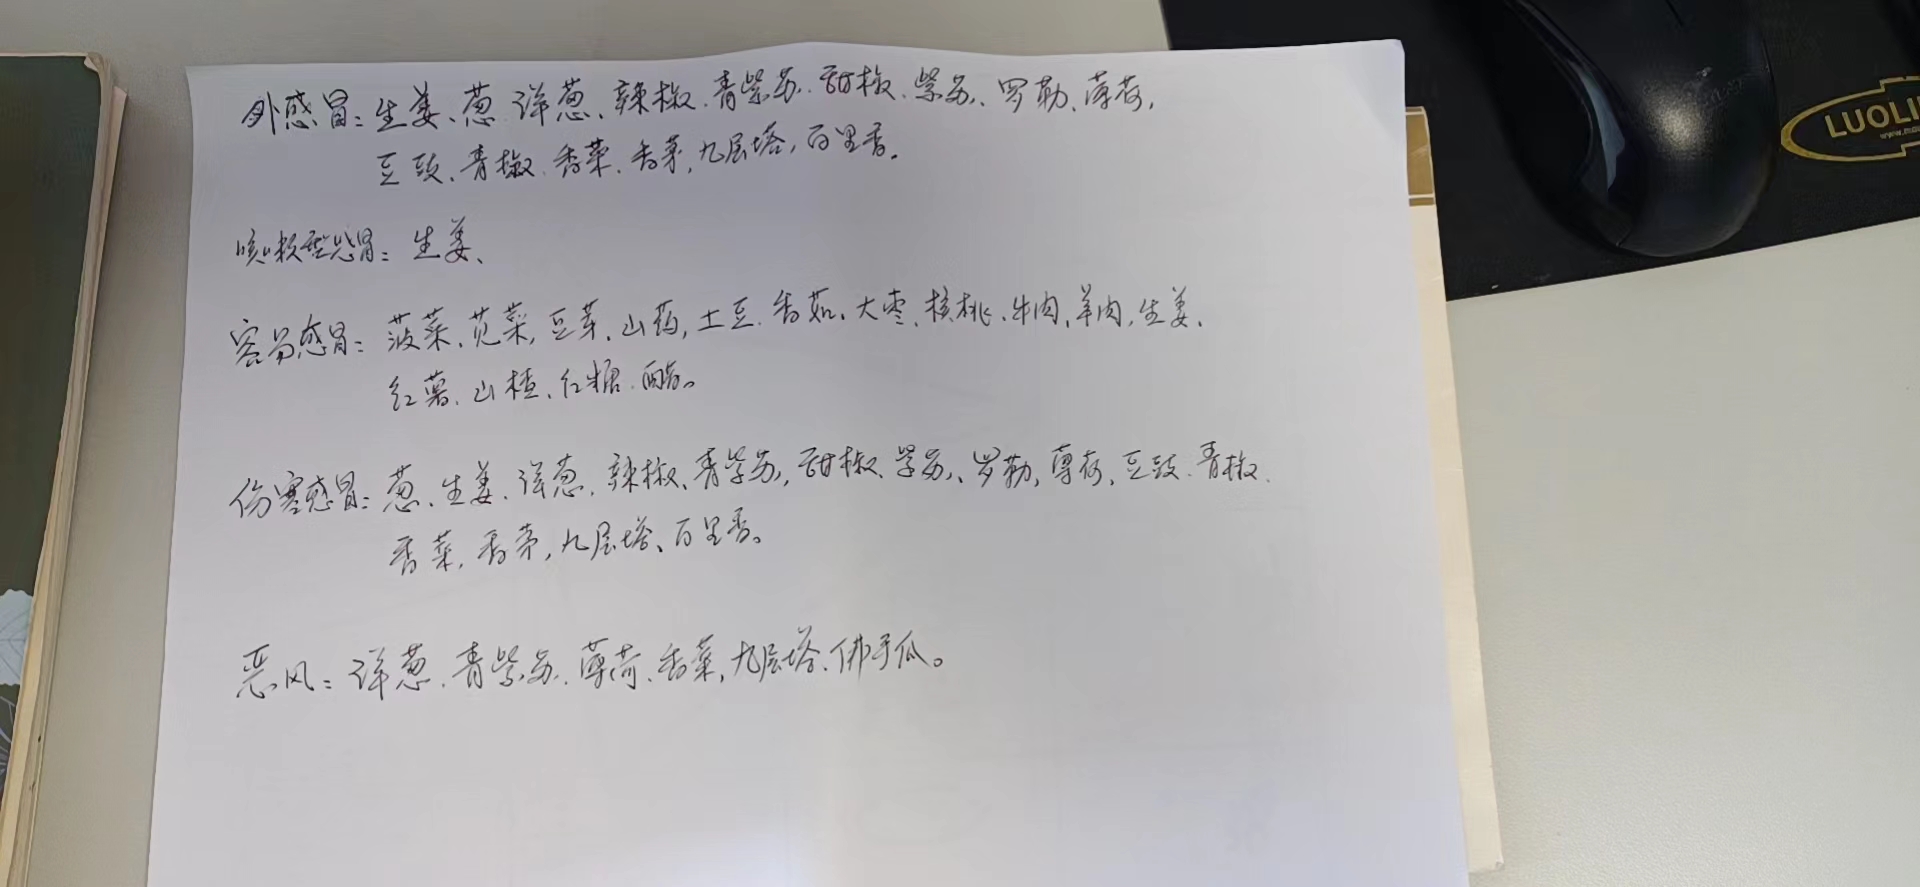 外感冒：生姜、葱、洋葱、辣椒、青紫苏、甜椒、紫苏、罗勒、薄荷，
豆豉、青椒、香菜、香茅，九层塔，百里香。
咳嗽型感冒：生姜、
容易感冒：菠菜、苋菜，豆芽、山药，土豆、香菇、大枣、核桃、牛肉、羊肉，生姜、
红薯、山楂、红糖、醋。
伤寒感冒：葱、生姜、洋葱、辣椒、青紫苏，甜椒、紫苏、罗勒，薄荷，豆豉、青椒、
香菜，香茅，九层塔、百里香。
恶风：洋葱、青紫苏、薄荷、香菜，九层塔、佛手瓜。
LUOLI